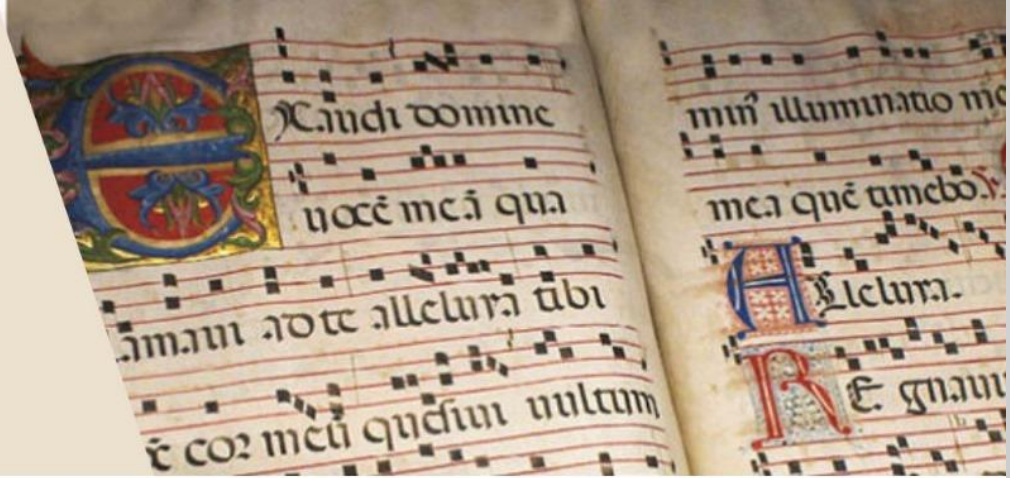 EXaudi domine
uocē meā qua
amaui ad te alleluya tibi
c̄ cor meū quesiui uultum
minꝰ illuminatio me
mea quē timebo. V
ALleluya.
REgnaui